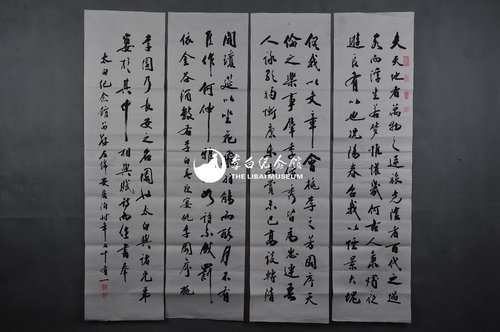 夫天地者萬物之逆旅光陰者百代之過
客而浮生若夢惟懽幾何古人秉燭夜
遊良有以也況陽春召我以煙景大塊
假我以文章會桃李之芳園序天
倫之樂事群季俊秀皆為惠連吾
人詠歌獨慚康樂幽賞未已高談轉清
開瓊筵以坐花飛羽觴而醉月不有
佳作何伸雅懷如詩不成罰
依金谷酒數右李白春夜宴從弟桃李園序桃
李園乃長安之名園也太白與諸兄弟
宴於其中相與賦詩而作書奉
太白紀念館
李白纪念馆
THE LIBAI MUSEUM